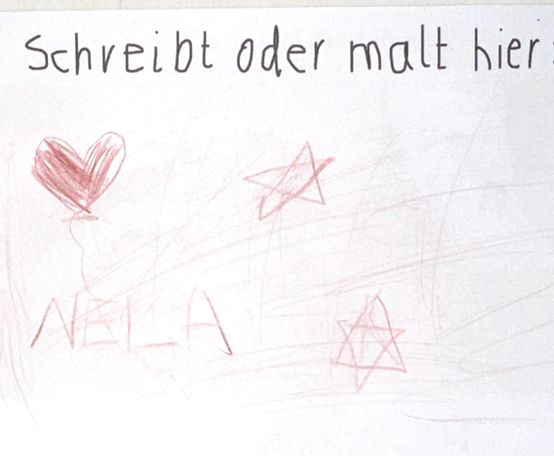 Schreibt oder malt hier
NELA